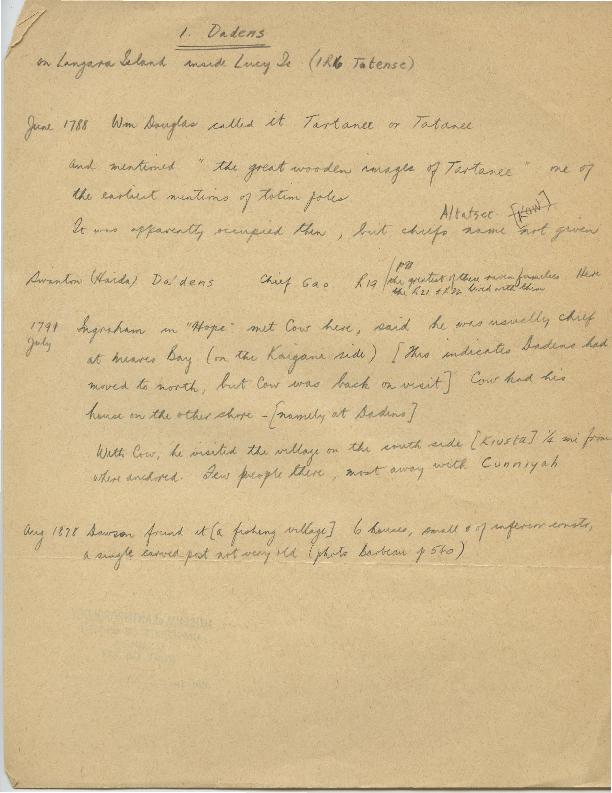 1. Dadens
on Langara Island inside Lucy Is (IR6 Tatense)
June 1788 Wm Douglas called it Tartanee or Tatanee
and mentioned "the great wooden images of Tartanee" one of
the earliest mentions of totem poles
Altatsee [Kow]
It was apparently occupied then, but chiefs name not given
Swanton (Haida) Da'dens Chief Gao. R19 / p98
the greatest of these raven families Here
the R21 & R22 lived with them
1791 Ingraham in "Hope" met Cow here, said he was usually chief
July at Meares Bay (on the Kaigane side) [This indicates Dadens had
moved to north, but Cow was back on visit] Cow had his
house on the other shore - [namely at Dadens]
With Cow, he visited the village on the south side [Kiusta] 1/4 mi from
where anchored. Few people there, most away with Cunniyah
Aug 1878 Dawson found it [a fishing village] 6 houses, small & of inferior constr,
a single carved post not very old (photo Barbeau p 560)